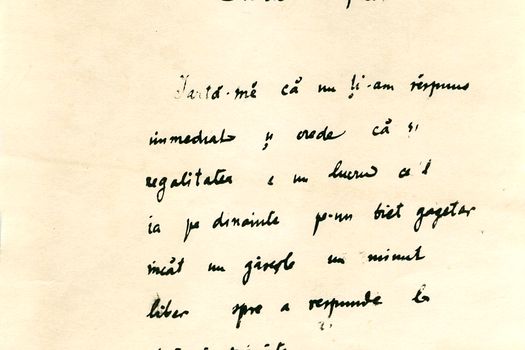 Iartă-mă că nu ți-am răspuns
immediat și crede că și
regalitatea e un lucru ce'l
ia pe dinainte pe-un biet gazetar
încât nu găsește un minut
liber spre a respunde la